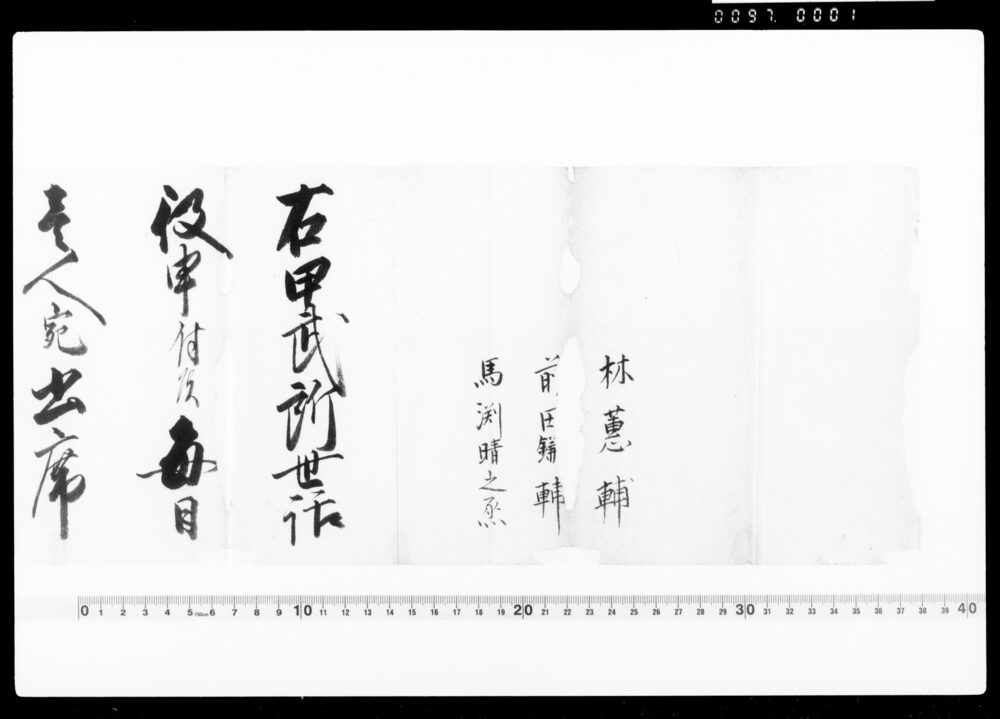 0097. 0001
林蕙輔
前田鎌輔
馬渕晴之烝
右甲武所世話
役申付候毎日
壱人宛出席
0 1 2 3 4 5 150cm 6 7 8 9 10 11 12 13 14 15 16 17 18 19 20 21 22 23 24 25 26 27 28 29 30 31 32 33 34 35 36 37 38 39 40